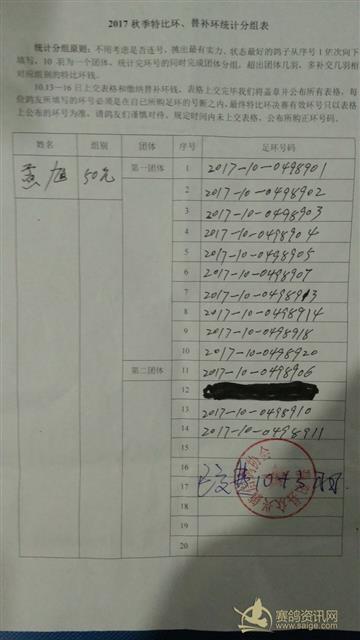 2017 秋季特比环、普补环统计分组表
统计分组原则：不用考虑是否连号，挑出最有实力、状态最好的鸽子从序号1依次向下
填写，10 羽为一个团体，统计完环号的同时完成团体分组，超出团体几羽，多补交几羽相
对应组别的特比环钱。
10.13—16日上交表格和缴纳普补环钱，表格上交完毕我们将盖章并公布所有表格，每
位鸽友所填写的环号必须是在自己所购足环的号断之内，最终特比环决赛有效环号只以表格
上公布的环号为准，请鸽友们谨慎对待。规定时间内未上交表格，公布所购正环号码。
姓名 组别 团体 序号 足环号码
50元 第一团体 1 2017-10-0498901
2 2017-10-0498902
3 2017-10-0498903
4 2017-10-0498904
5 2017-10-0498905
6 2017-10-0498907
7 2017-10-0498913
8 2017-10-0498914
9 2017-10-0498918
10 2017-10-0498920
第二团体 11 2017-10-0498906
12
13 2017-10-0498910
14 2017-10-0498911
15
16
17
18
19
20
赛鸽资讯网
www.saige.com